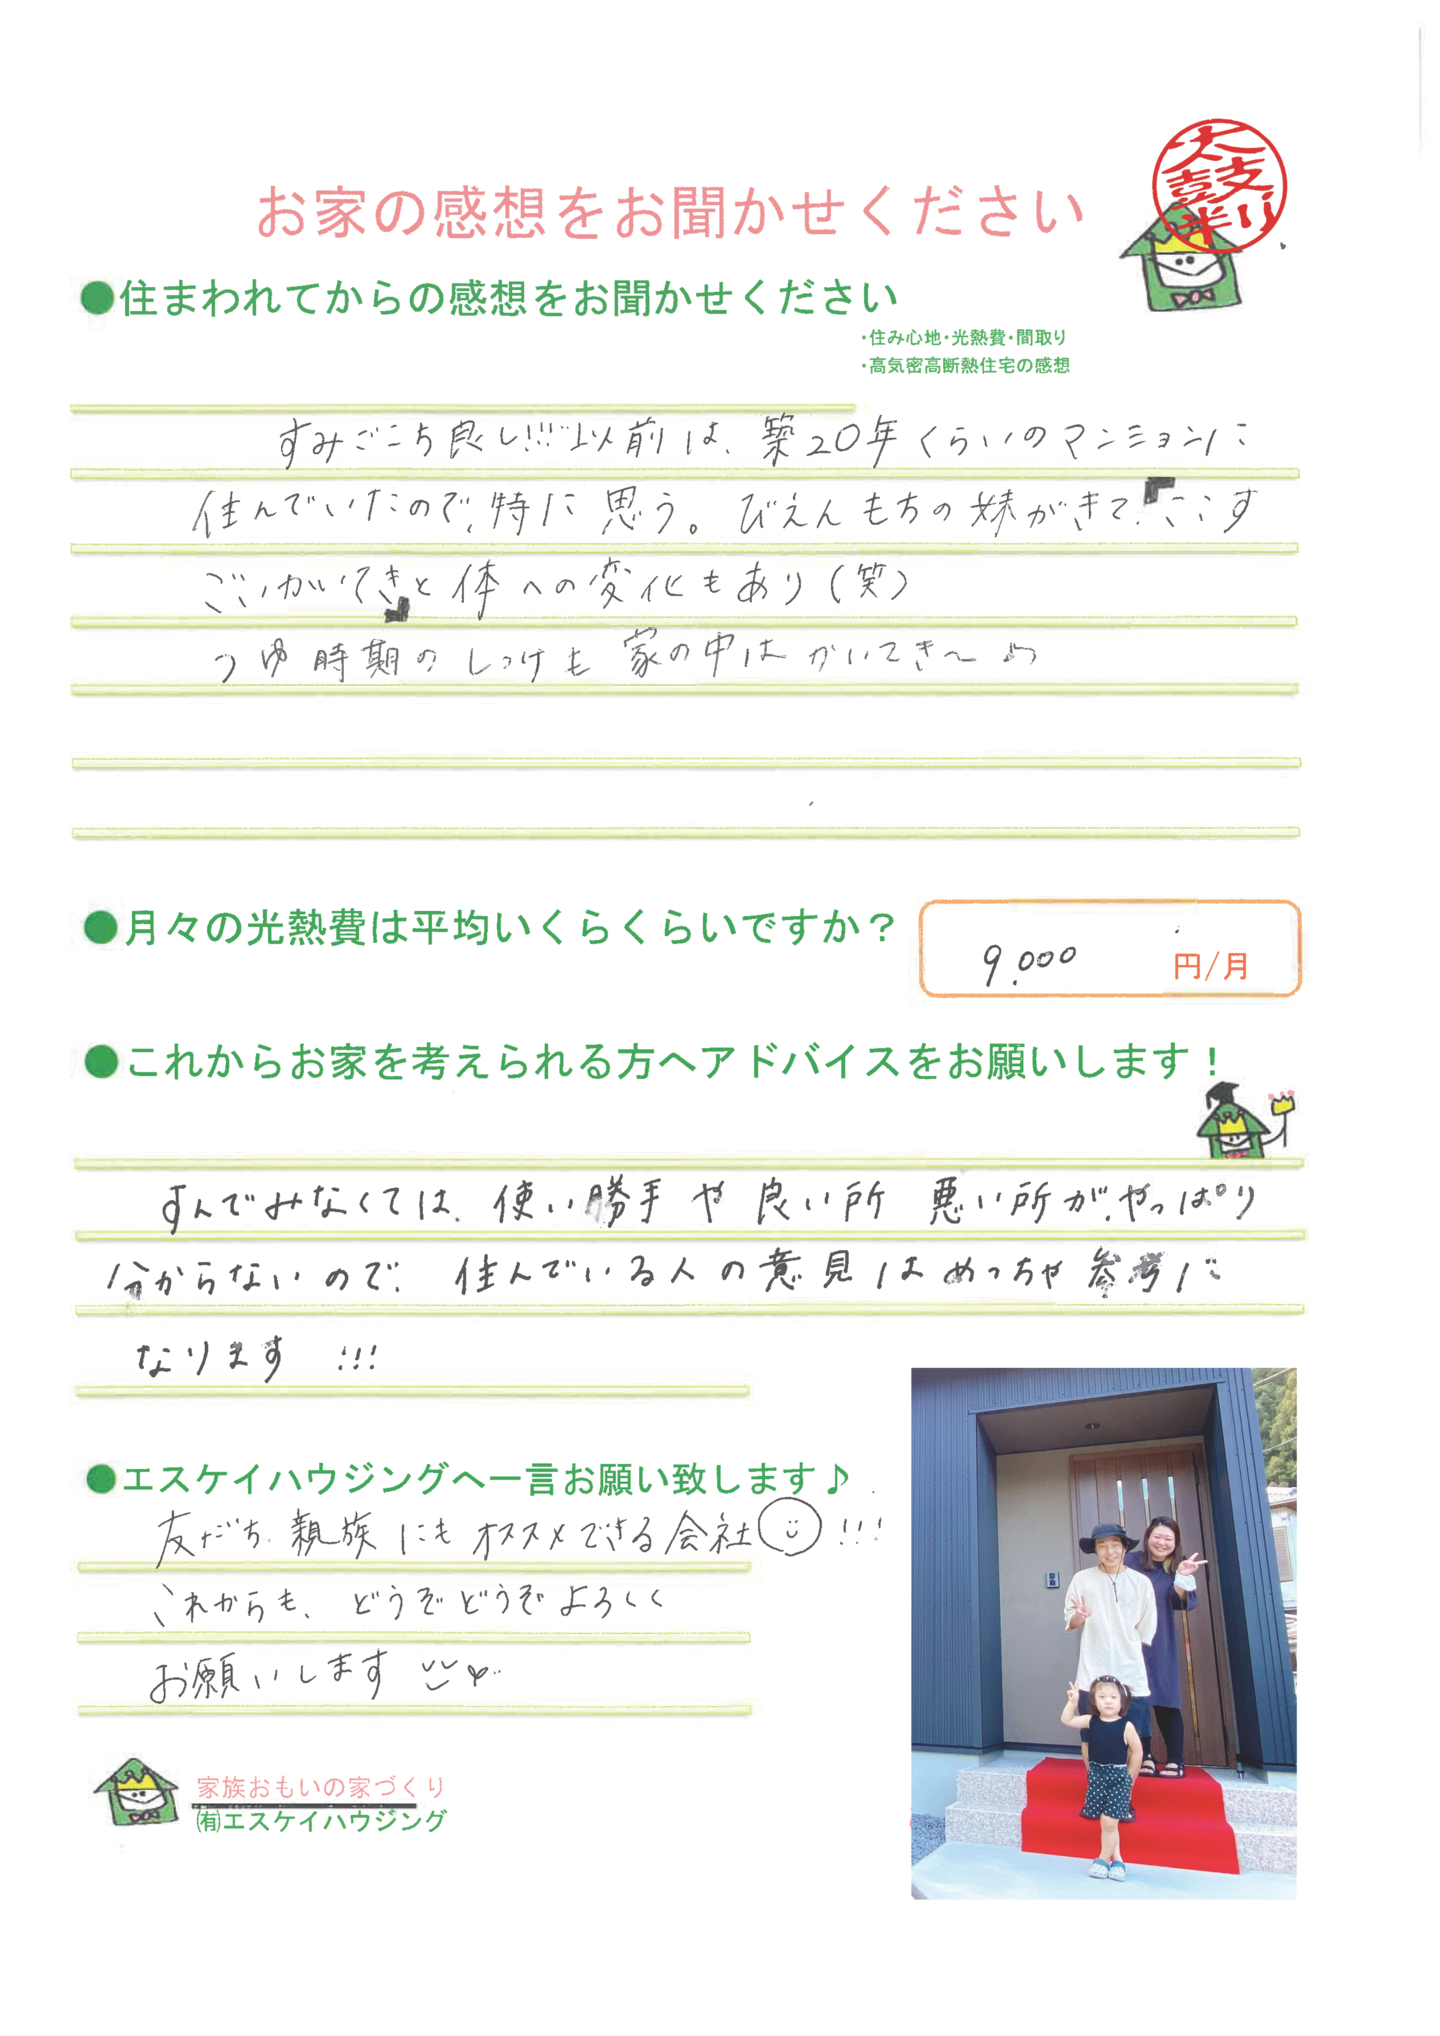 太鼓判
お家の感想をお聞かせください
●住まわれてからの感想をお聞かせください
・住み心地・光熱費・間取り
・高気密高断熱住宅の感想
すみごこち良し!!!以前は、築20年くらいのマンションに
住んでいたので、特に思う。びえんもちの妹がきて、「ここす
ごいかいてき」と体への変化もあり(笑)
つゆ時期のしっけも家の中はかいてき〜♪
●月々の光熱費は平均いくらくらいですか?
9.000 円/月
●これからお家を考えられる方へアドバイスをお願いします!
すんでみなくては、使い勝手や良い所 悪い所が、やっぱり
分からないので、住んでいる人の意見はめっちゃ参考に
なります !!!
●エスケイハウジングへ一言お願い致します♪
友だち、親族にもオススメできる会社 !!!
これからも、どうぞどうぞよろしく
お願いします
家族おもいの家づくり
㈲エスケイハウジング